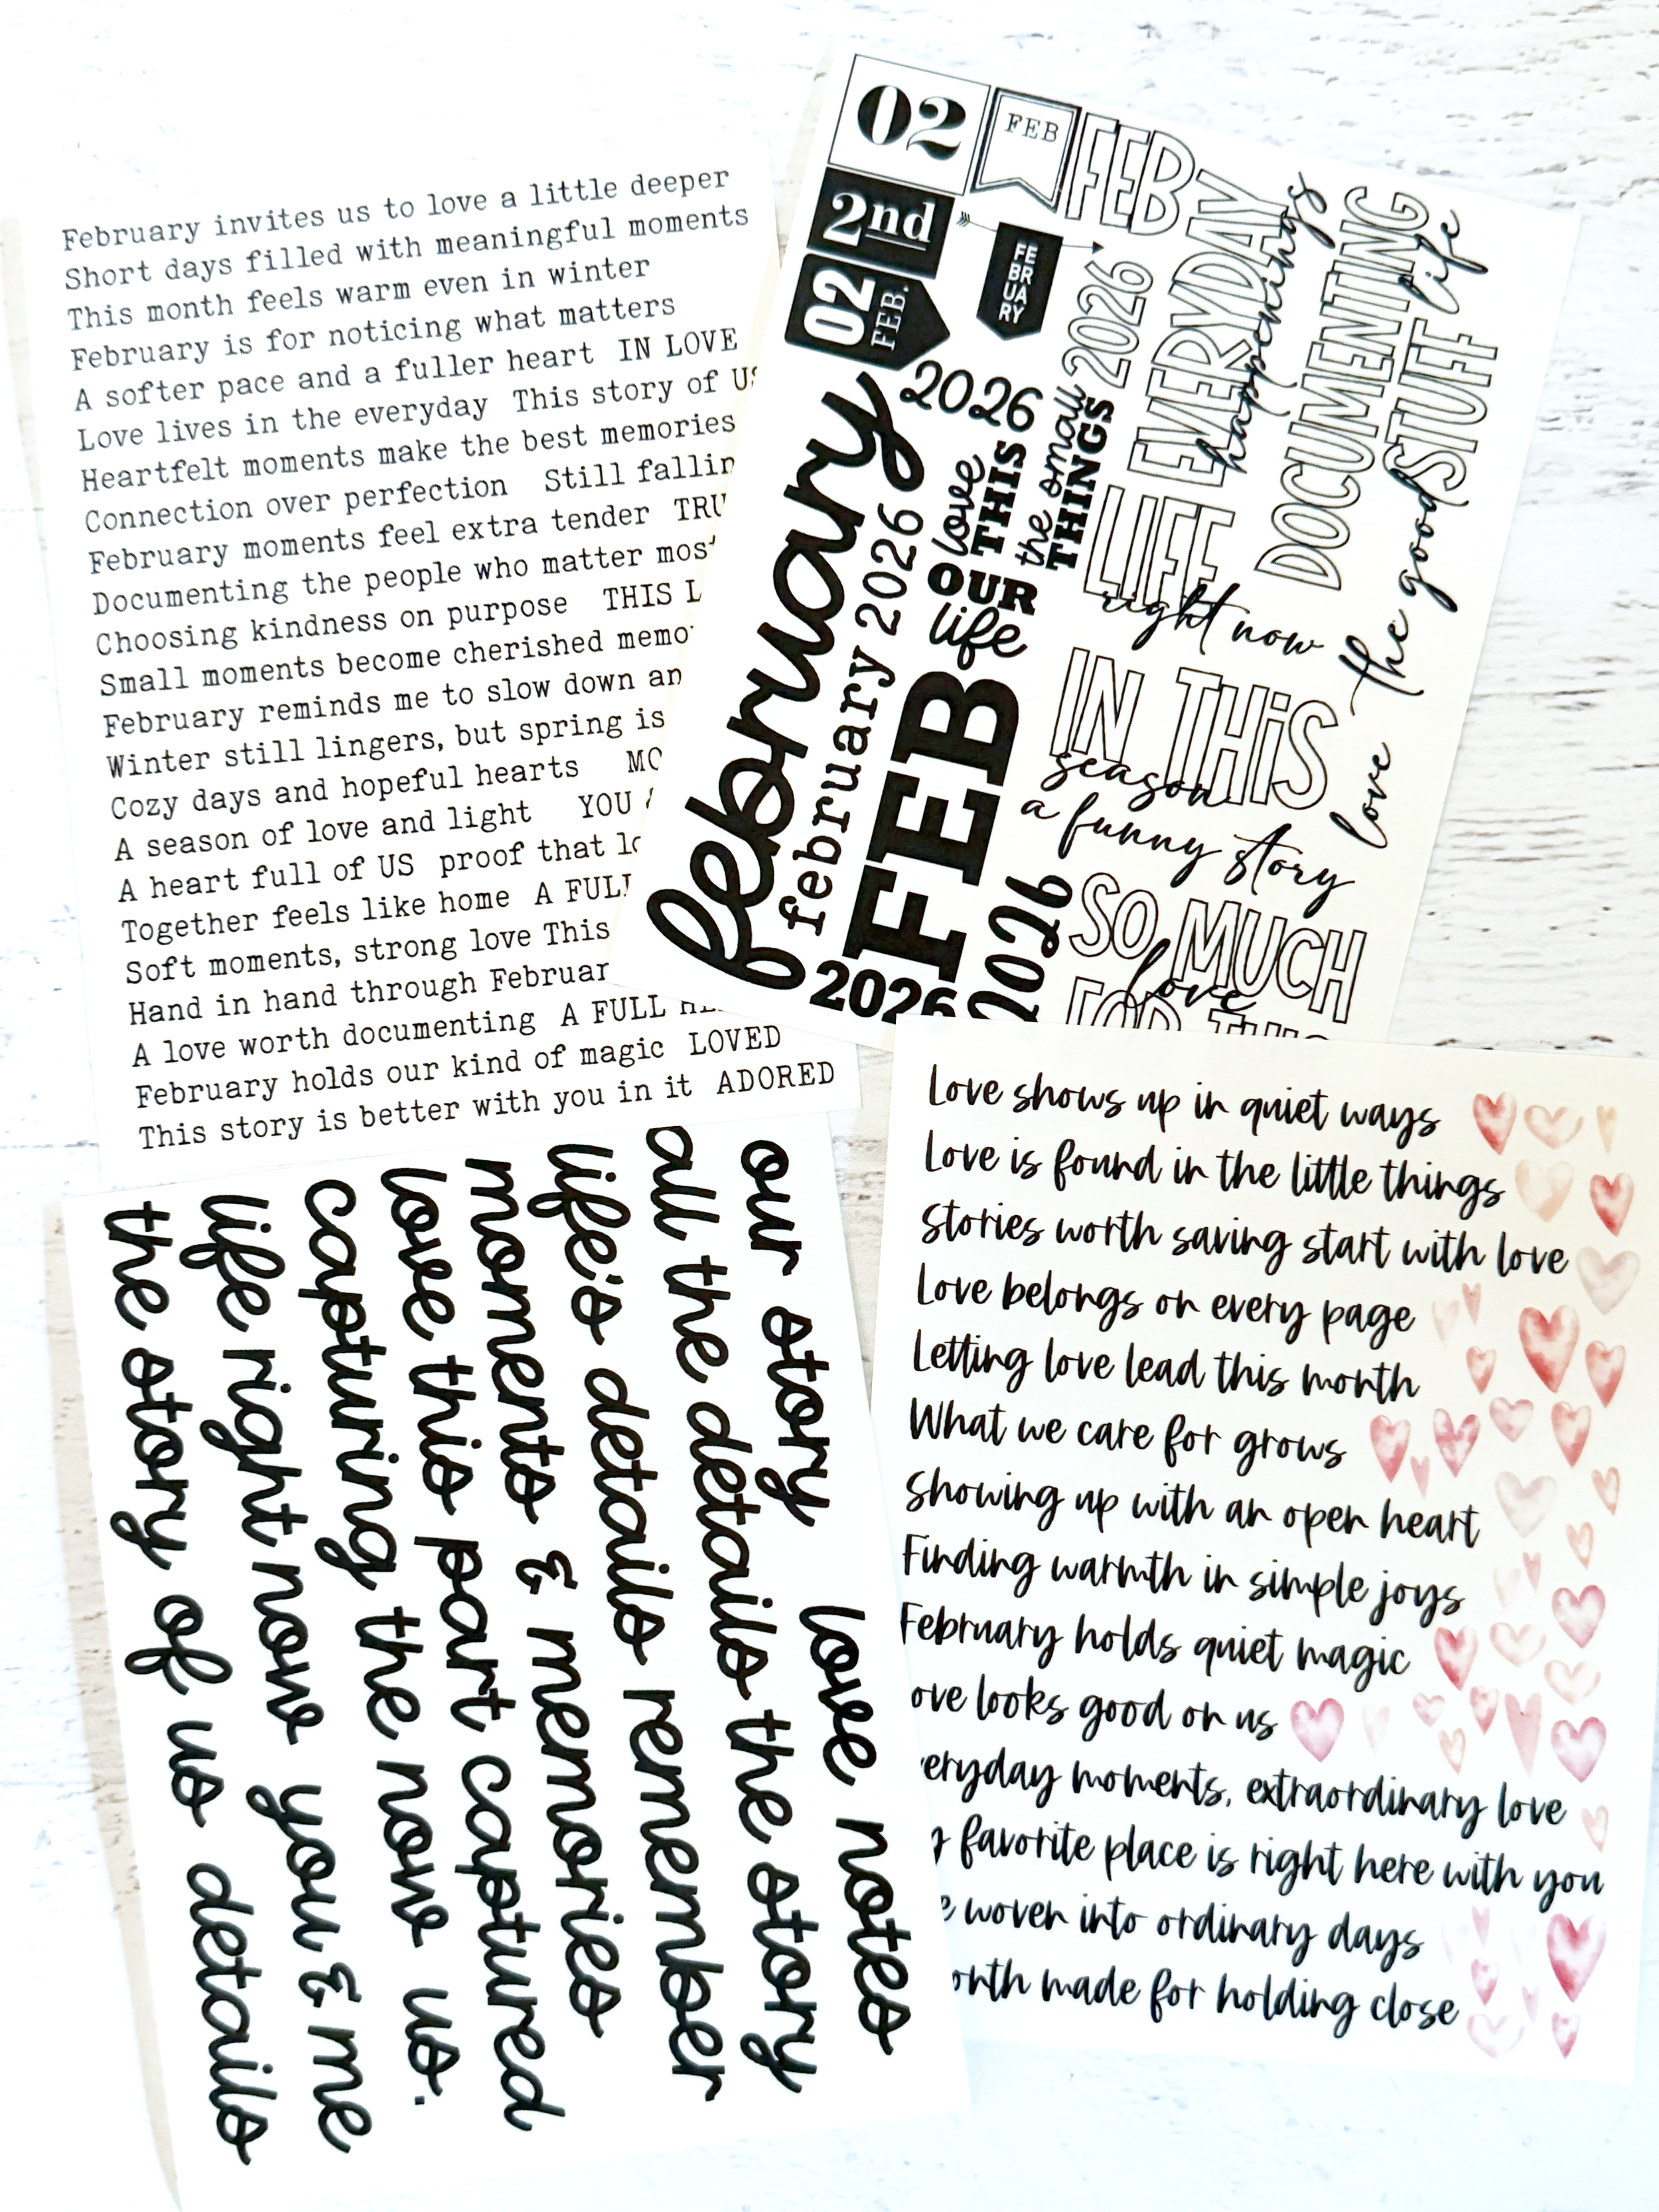 February invites us to love a little deeper
Short days filled with meaningful moments
This month feels warm even in winter
February is for noticing what matters
A softer pace and a fuller heart IN LOVE
Love lives in the everyday This story of US
Heartfelt moments make the best memories
Connection over perfection Still
February moments feel extra tender
Documenting the people who matter most
Choosing kindness on purpose THIS
Small moments become cherished
February reminds me to slow down
Winter still lingers, but spring is
Cozy days and hopeful hearts
A season of love and light YOU
A heart full of US proof that
Together feels like home A
Soft moments, strong love This
Hand in hand through
A love worth documenting A FULL
February holds our kind of magic LOVED
This story is better with you in it ADORED
02
FEB
2nd
02
FEB.
FE
BR
UA
RY
2026
february
february 2026
FEB
2026
2026
love
THIS
the small
THINGS
OUR
life
FEB
2026
EVERYDAY
happenings
LIFE
right now
DOCUMENTING
life
the good STUFF
love
IN THiS
season
a funny story
SO MUCH
love
Love shows up in quiet ways
Love is found in the little things
Stories worth saving start with love
Love belongs on every page
Letting love lead this month
What we care for grows
Showing up with an open heart
Finding warmth in simple joys
February holds quiet magic
ove looks good on us
eryday moments, extraordinary love
favorite place is right here with you
woven into ordinary days
onth made for holding close
our story love notes
all the details the story
life's details remember
moments & memories
love this part captured
capturing the now us.
life right now you & me
the story of us details